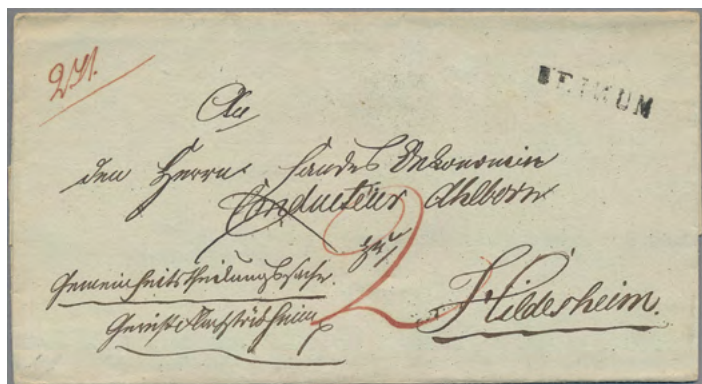 An
den Herrn Landes Oekonomie
Conducteur Ahlborn
zu
Hildesheim.
Gemeinheitstheilungssache.
Gericht
2